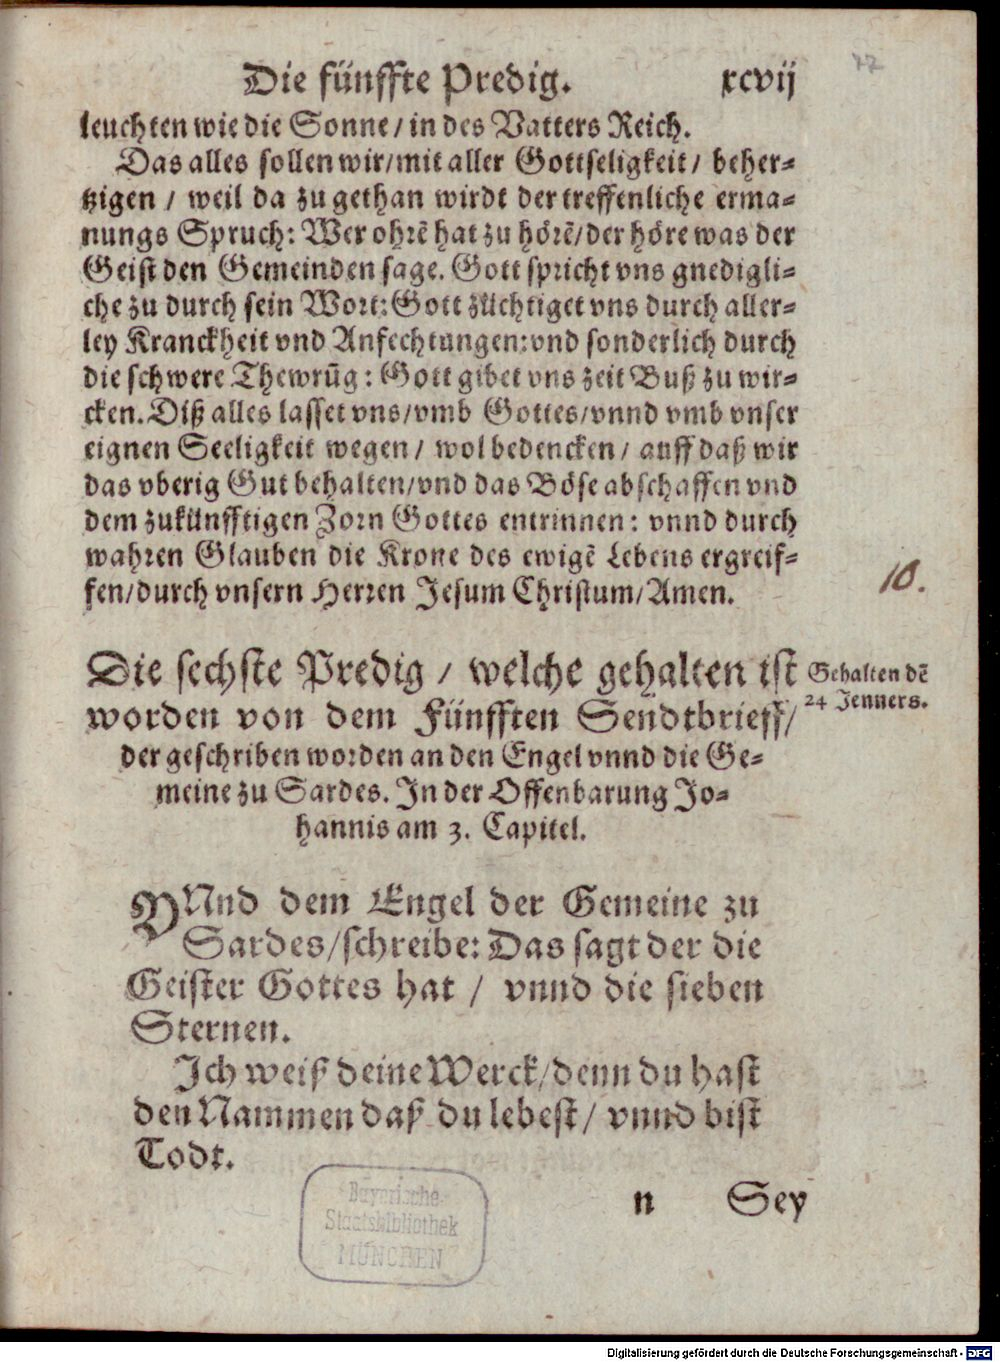 Die fünffte Predig. xcvij
leuchten wie die Sonne/ in des Vatters Reich.
Das alles sollen wir/mit aller Gottseligkeit/ beher-
tzigen / weil da zu gethan wirdt der treffenliche erma-
nungs Spruch: Wer ohrẽ hat zu hörẽ/der höre was der
Geist den Gemeinden sage. Gott spricht vns gnedigli-
che zu durch sein Wort: Gott züchtiget vns durch aller-
ley Kranckheit vnd Anfechtungen: vnd sonderlich durch
die schwere Thewrũg: Gott gibet vns zeit Buß zu wir-
cken. Diß alles lasset vns/vmb Gottes/vnnd vmb vnser
eignen Seeligkeit wegen/ wol bedencken/ auff daß wir
das vberig Gut behalten/vnd das Böse abschaffen vnd
dem zukünfftigen Zorn Gottes entrinnen: vnnd durch
wahren Glauben die Krone des ewigẽ Lebens ergreif-
fen/durch vnsern Herren Jesum Christum/Amen.
10.
Die sechste Predig / welche gehalten ist
worden von dem Fünfften Sendtbrieff/
der geschriben worden an den Engel vnnd die Ge-
meine zu Sardes. In der Offenbarung Jo-
hannis am 3. Capitel.
Gehalten dẽ
24 Jenners.
VNnd dem Engel der Gemeine zu
Sardes/schreibe: Das sagt der die
Geister Gottes hat / vnnd die sieben
Sternen.
Ich weiß deine Werck/denn du hast
den Nammen daß du lebest/ vnnd bist
Todt.
n Sey
Bayerische
Staatsbibliothek
MÜNCHEN
Digitalisierung gefördert durch die Deutsche Forschungsgemeinschaft - DFG